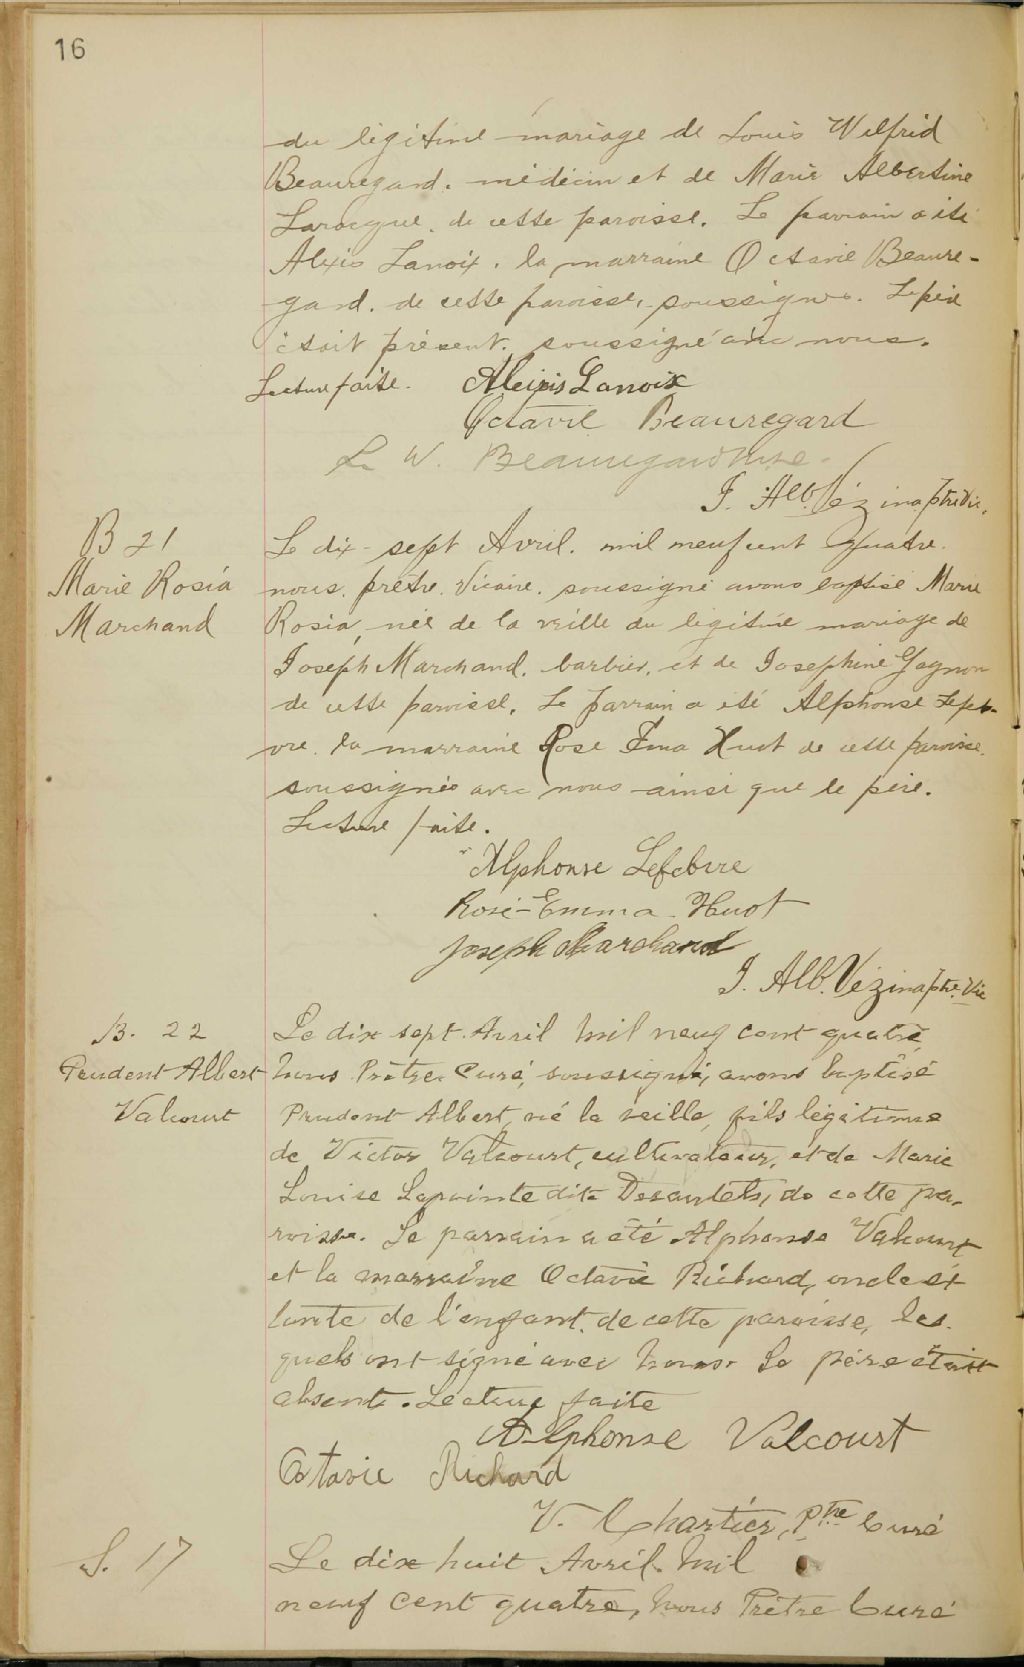 16
du légitime mariage de Louis Wilfrid
Beauregard, médecin et de Marie Albertine
Larocque, de cette paroisse. Le parrain a été
Alexis Lanoix, la marraine Octavie Beaure-
gard, de cette paroisse, soussignés. Le père
était présent, soussigné avec nous.
Lecture faite. Alexis Lanoix
Octavie Beauregard
L. W. Beauregard
J. Alb. Vézina ptre Vic.
B 21
Marie Rosia
Marchand
Le dix-sept Avril, mil neuf cent quatre
nous, prêtre, Vicaire, soussigné avons baptisé Marie
Rosia, née de la veille du légitime mariage de
Joseph Marchand, barbier, et de Josephine Gagnon
de cette paroisse. Le parrain a été Alphonse Lefeb-
vre, la marraine Rose Ema Huot de cette paroisse
soussignés avec nous ainsi que le père.
Lecture faite.
Alphonse Lefebvre
Rose-Emma Huot
Joseph Marchand
J. Alb. Vézina ptre. Vic
B. 22
Prudent Albert
Valcourt
Le dix sept Avril mil neuf cent quatre,
nous Prêtre Curé, soussigné, avons baptisé
Prudent Albert, né la veille, fils légitime
de Victor Valcourt, cultivateur, et de Marie
Louise Lapointe dite Desautels, de cette pa-
roisse. Le parrain a été Alphonse Valcourt
et la marraine Octavie Richard, oncle et
tante de l'enfant, de cette paroisse, les-
quels ont signé avec nous. Le père était
absent. Lecture faite
Alphonse Valcourt
Octavie Richard
V. Chartier, Ptre Curé
S. 17
Le dix huit Avril mil
neuf cent quatre, nous Prêtre Curé